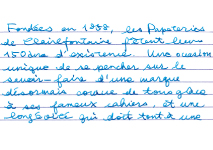 Fondées en 1858, les Papeteries
de Clairefontaine fêtent leurs
150 ans d'existence. Une occasion
unique de se pencher sur le
savoir-faire d'une marque
désormais connue de tous grâce
à ses fameux cahiers, et une
longévité qui doit tout à une